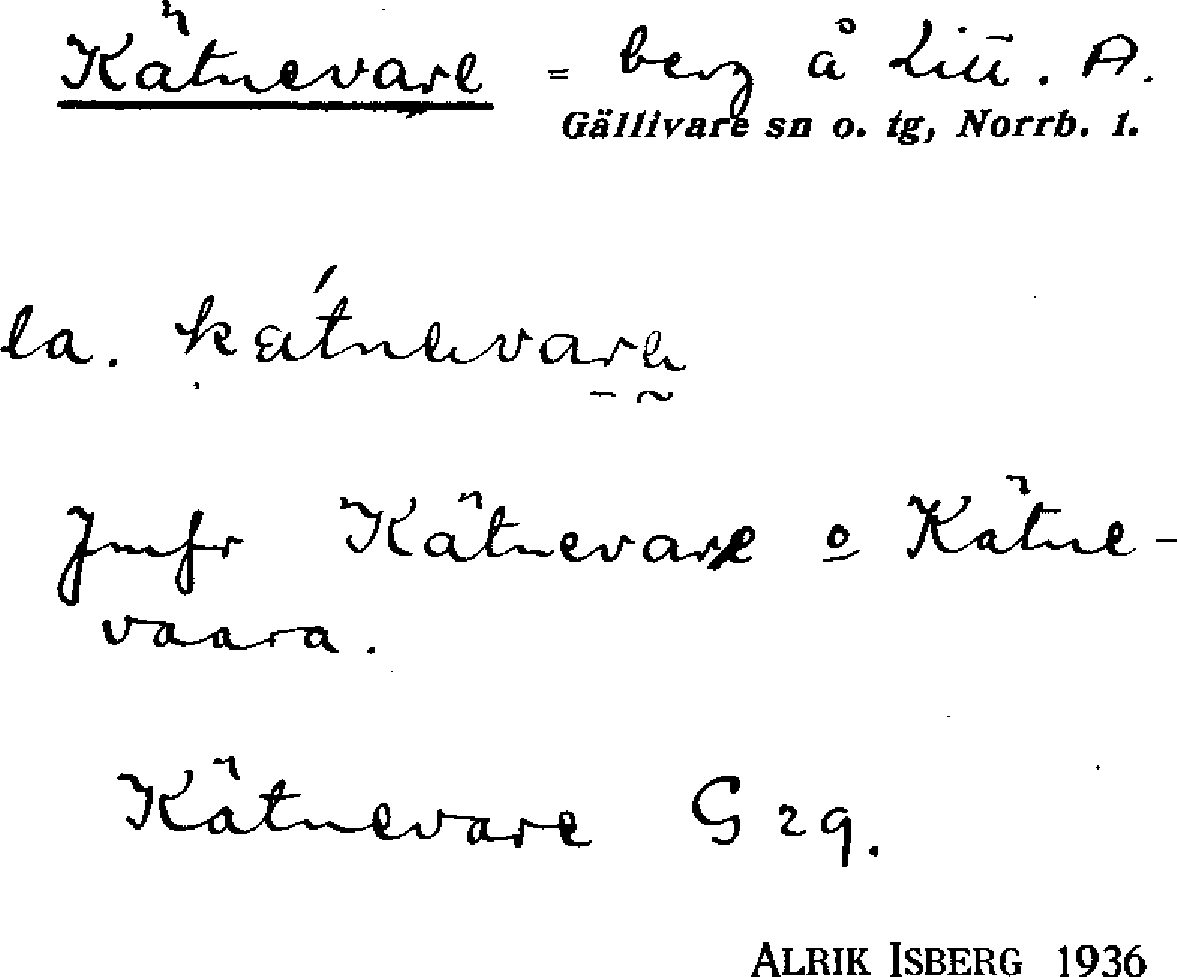 Kätnevare = berg å Litt. A.
Gällivare sn o. tg, Norrb. l.
la. kátnevare
Jmfr Kätnevare o Kätne-
vaara.
Kätnevare G 29.
ALRIK ISBERG 1936